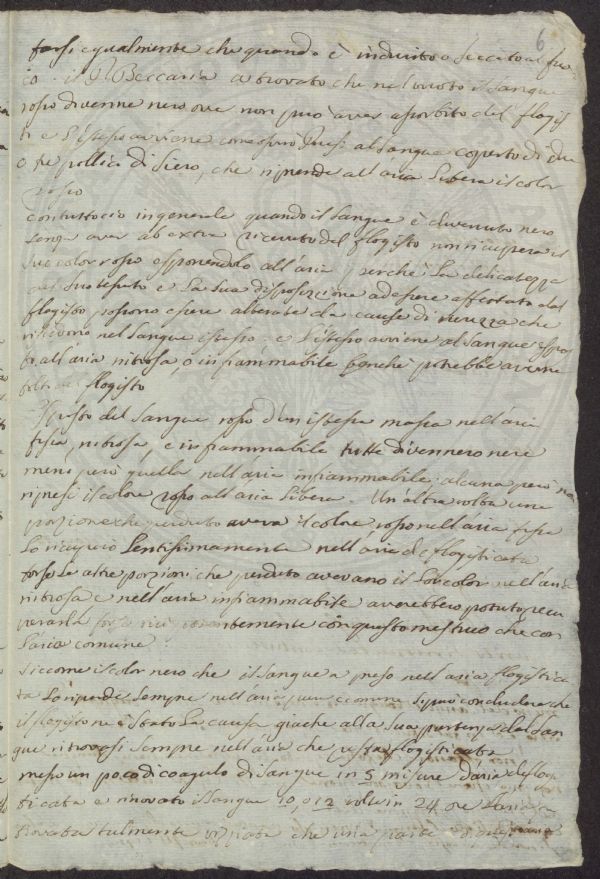 6
forsi egualmente che quando è indurito o seccato al fuo
co. il P. Beccaria a trovato che nel vuoto il Sangue
rosso divenne nero ove non può aver assorbito del flogis
e l'istesso avviene al Sangue coperto di due
o tre pollici di Siero, che riprende all'aria Libera il color
rosso
contuttociò in generale quando il Sangue è divenuto nero
senza aver ab extra ricevuto del flogisto non ricupera il
suo color rosso esponendolo all'aria perchè La delicatezza
del suo tessuto e La sua disposizione ad essere affettato dal
flogisto possono essere alterate da cause che
nel Sangue istesso e l'istesso avviene al Sangue espos
to all'aria nitrosa, o infiammabile benchè potrebbe averne
flogisto
Esposto del Sangue rosso d'un istessa massa nell'aria
fissa, nitrosa, e infiammabile tutte divennero nere
meno però quella nell'aria infiammabile; alcuna però non
ripresi il colore rosso all'aria Libera. Un altra volta una
porzione che perduto aveva il colore rosso nell'aria fissa
Lo ricuperò Lentissimamente nell'aria deflogisticata
forse Le altre porzioni che perduto avevano il Lor color nell'aria
nitrosa e nell'aria infiammabile averebbero potuto recu
perarla con questo mestruo che con
L'aria comune.
Siccome il color nero che il Sangue a preso nell'aria flogistica
ta Lo riprende sempre nell'aria pura e comune si può concludere che
il flogisto ne è stato La causa giacchè alla sua partenza dal San
gue ritrovasi sempre nell'aria che resta flogisticata
messo un poco di coagulo di Sangue in 5 misure d'aria deflogis
ticata e rinovato il Sangue 10, o 12 volte in 24 ore L'aria
trovata talmente viziata che una parte di